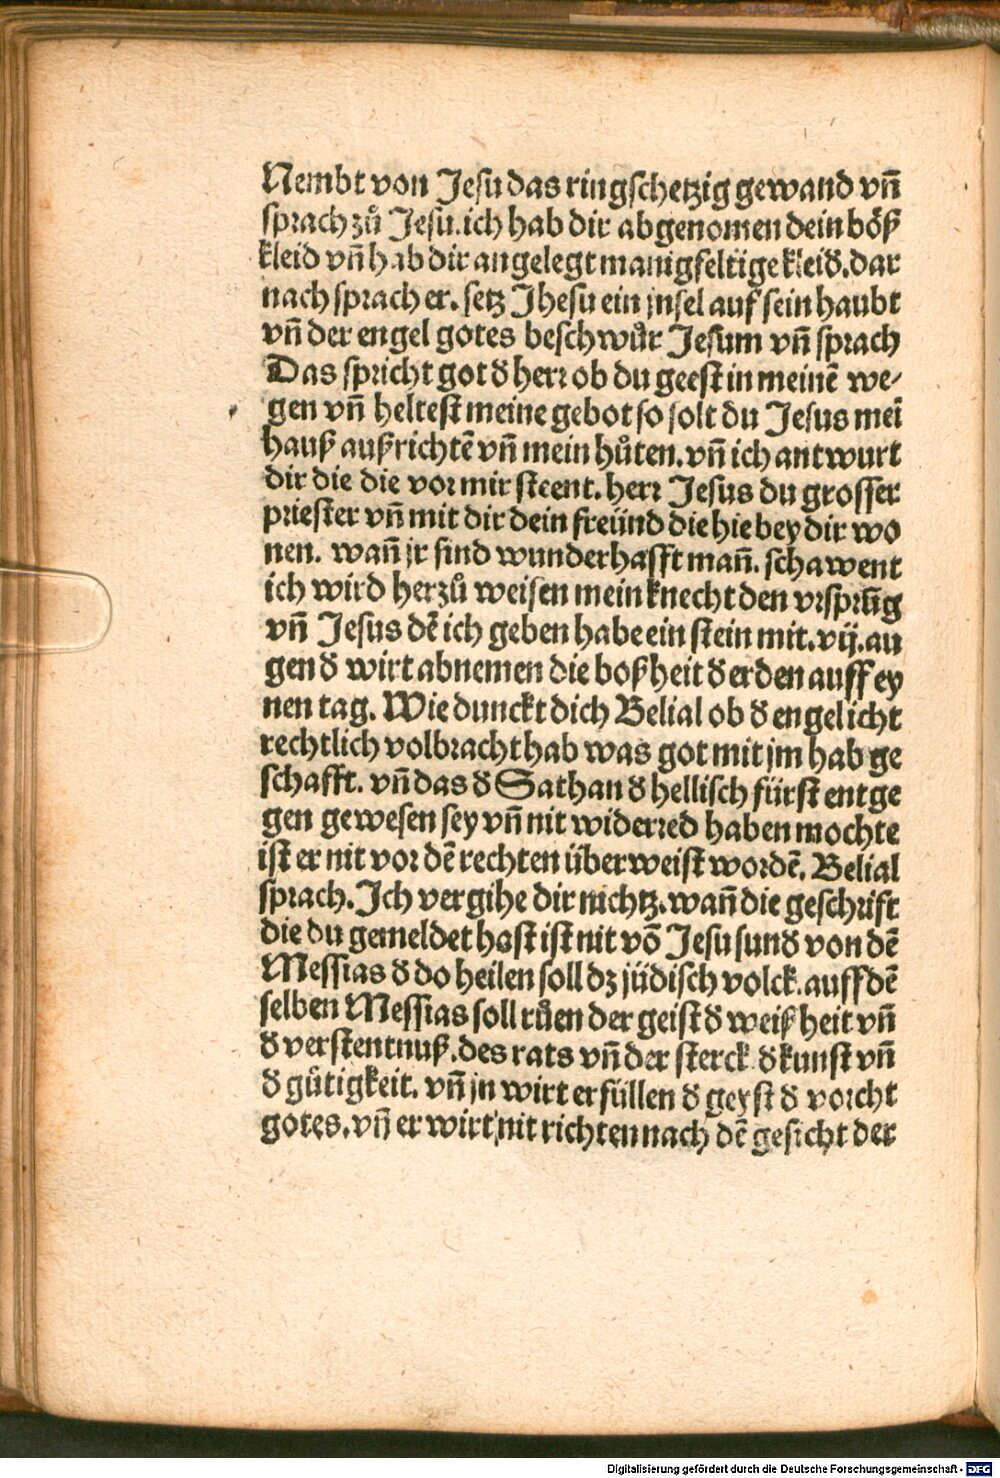 Nembt von Jesu das ringschetzig gewand vñ
sprach zů Jesu. ich hab dir abgenomen dein böß
kleid vñ hab dir angelegt manigfeltige kleid. dar
nach sprach er. setz Jhesu ein jnsel auf sein haubt
vñ der engel gotes beschwůr Jesum vñ sprach
Das spricht got đ herr ob du geest in meinē we⸗
gen vñ heltest meine gebot so solt du Jesus mei
hauß außrichtē vñ mein hůten. vñ ich antwurt
dir die die vor mir steent. herr Jesus du grosser
priester vñ mit dir dein freünd die hie bey dir wo
nen. wañ jr sind wunderhafft mañ. schawent
ich wird herzů weisen mein knecht den vrsprūg
vñ Jesus dē ich geben habe ein stein mit. vij. au
gen đ wirt abnemen die boßheit đ erden auff ey
nen tag. Wie dunckt dich Belial ob đ engel icht
rechtlich volbracht hab was got mit jm hab ge
schafft. vñ das đ Sathan đ hellisch fürst entge
gen gewesen sey vñ nit widerred haben mochte
ist er nit vor dē rechten überweist wordē. Belial
sprach. Ich vergihe dir nichtz. wañ die geschrift
die du gemeldet hast ist nit vō Jesu sunđ von dē
Messias đ do heilen soll dz jüdisch volck. auff dē
selben Messias soll růen der geist đ weißheit vñ
đ verstentnuß. des rats vñ der sterck đ kunst vñ
đ gütigkeit. vñ jn wirt erfüllen đ geyst đ vorcht
gotes. vñ er wirt nit richten nach dē gesicht der
Digitalisierung gefördert durch die Deutsche Forschungsgemeinschaft - DFG